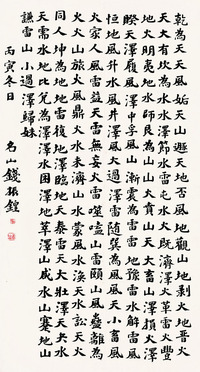 乾為天天風姤天山遯天地否風地觀山地剝火地晉火
天大有坎為水水澤節水雷屯水火既濟澤火革雷火豐
地火明夷地水師艮為山山火賁山天大畜山澤損火澤
睽天澤履風澤中孚風山漸震為雷雷地豫雷水解雷風
恒地風升水風井澤風大過澤雷隨巽為風風天小畜風
火家人風雷益天雷無妄火雷噬嗑山雷頤山風蠱離為
火火山旅火風鼎火水未濟山水蒙風水渙天水訟天火
同人坤為地地雷復地澤臨地天泰雷天大壯澤天夬水
天需水地比兌為澤澤水困澤地萃澤山咸水山蹇地山
謙雷山小過雷澤歸妹
丙寅冬日
名山錢振鍠